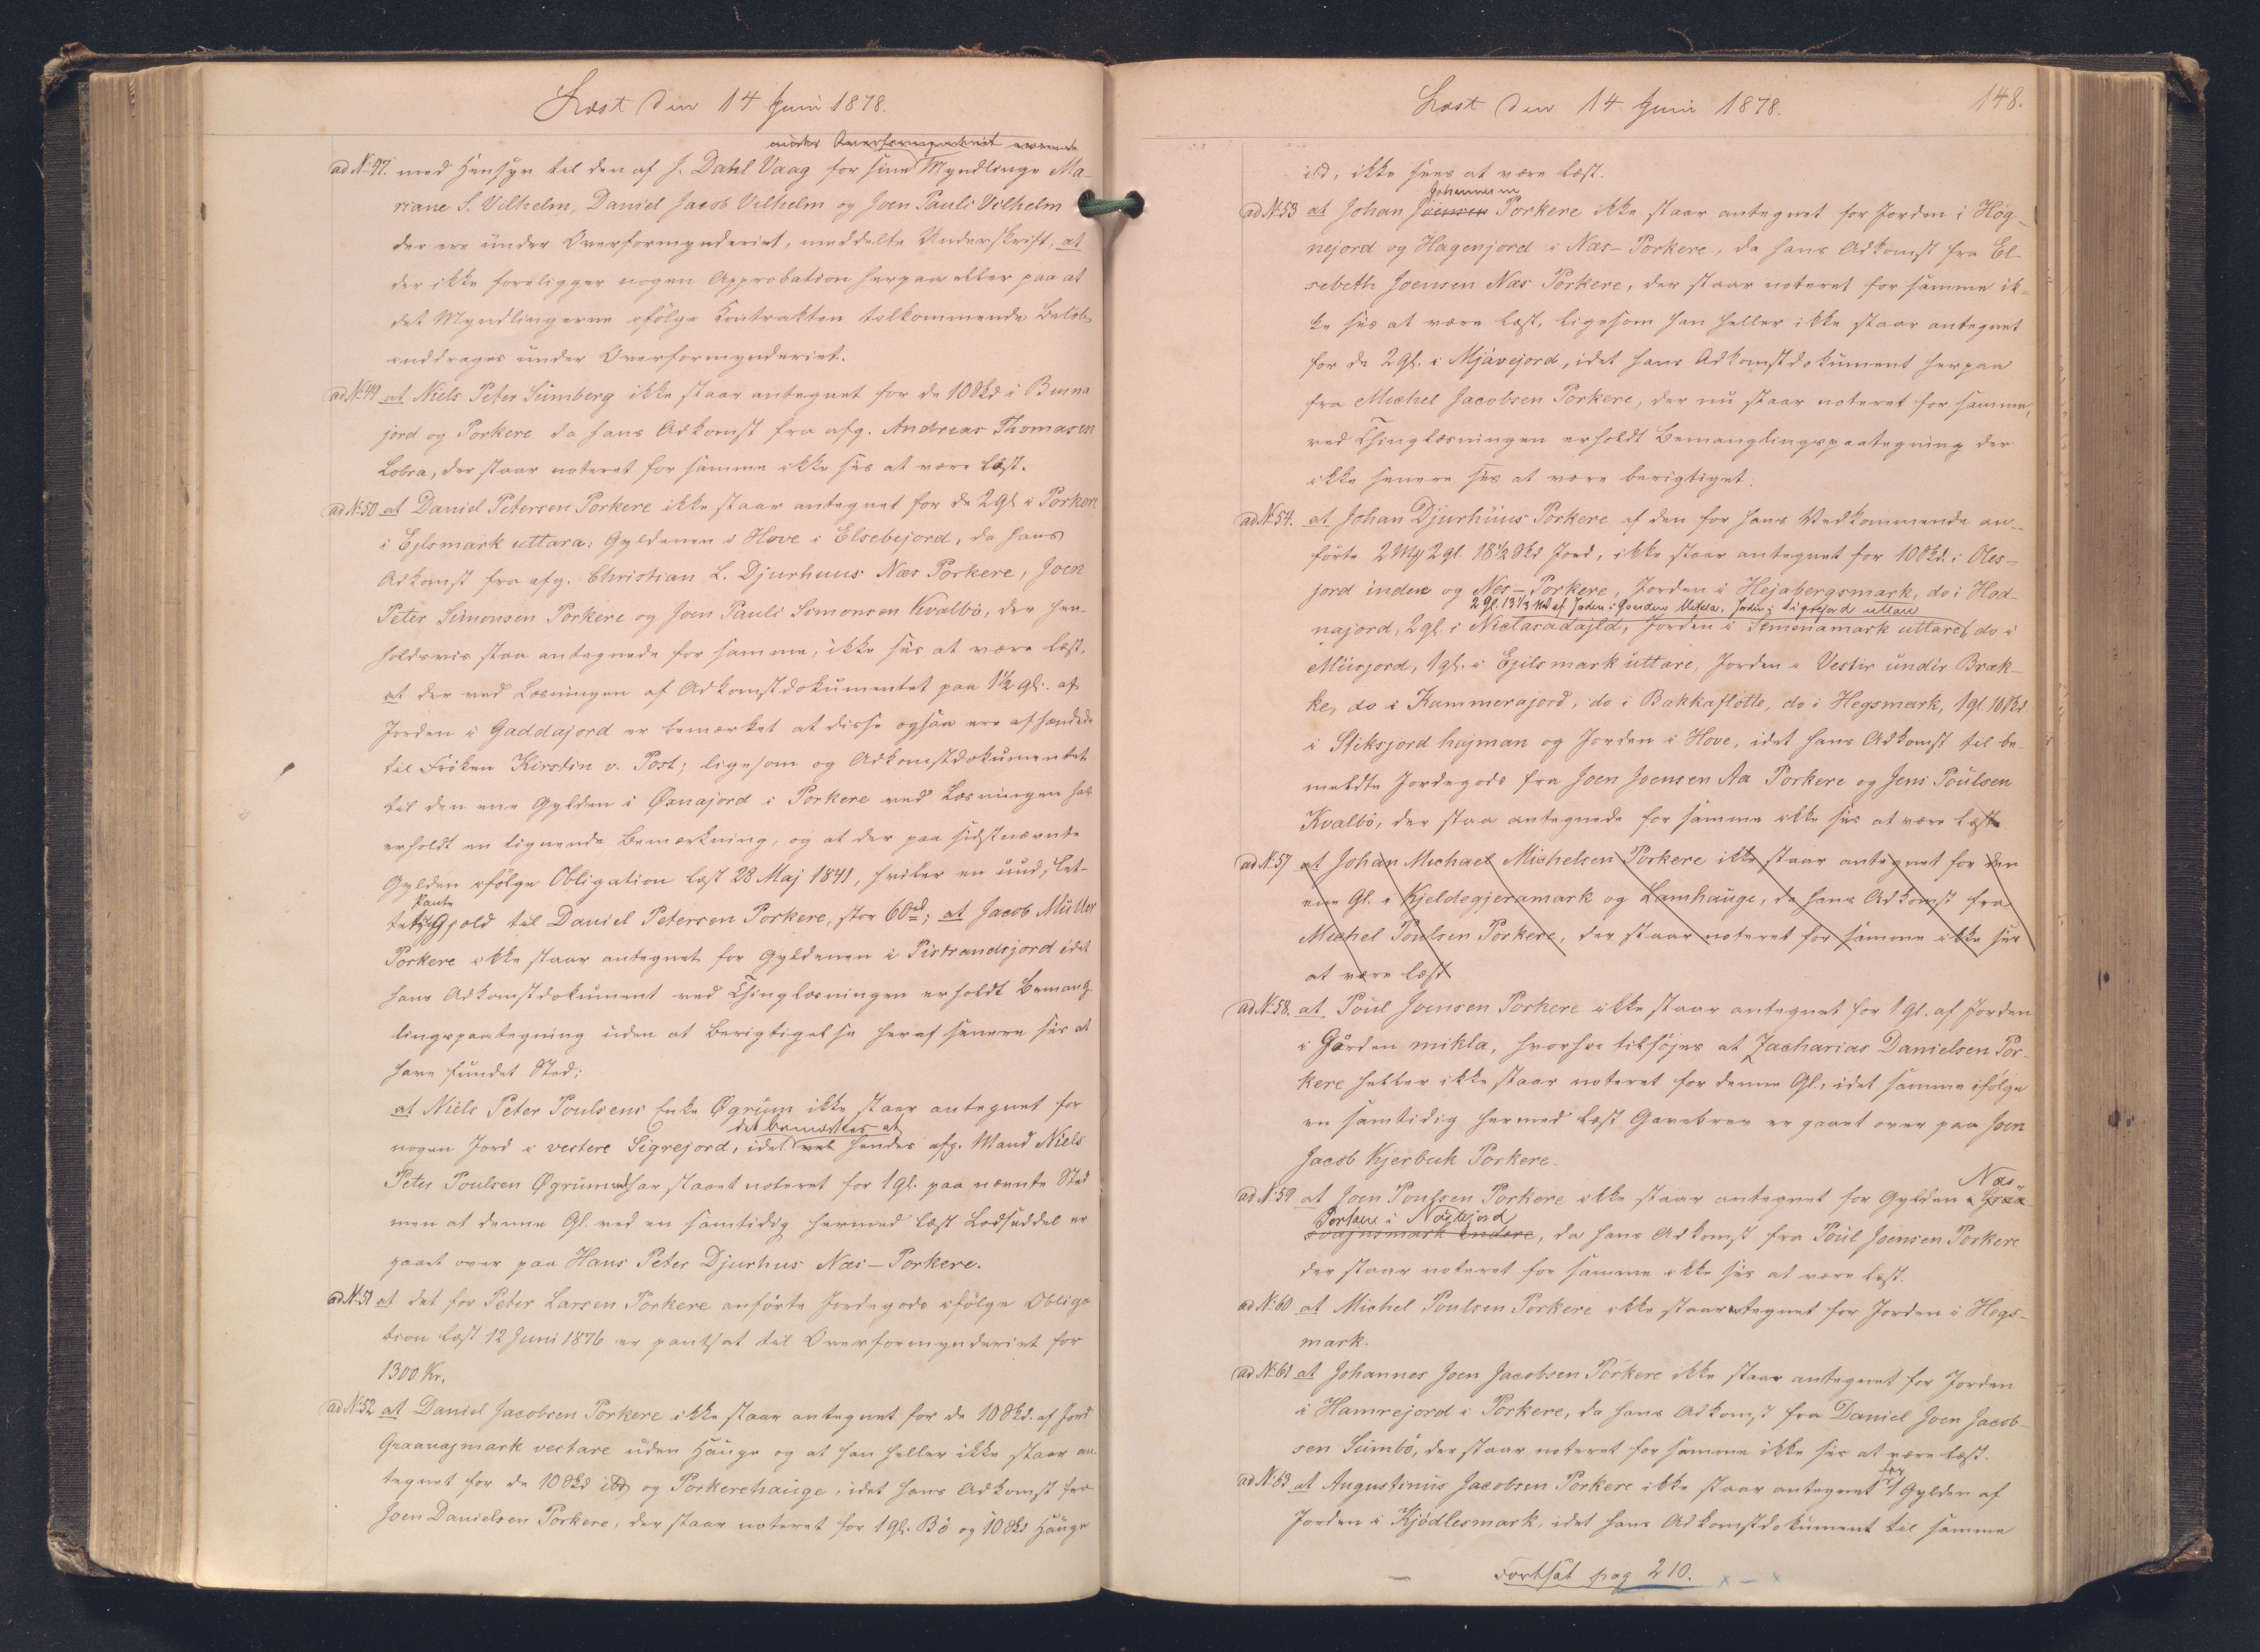 Læst den 14 Juni 1878.
ad No 47. med Hensyn til den af J. Dahl Vaag for sine Myndlinge Ma-
riane S. Vilhelm, Daniel Jacob Vilhelm og Joen Pauli Vilhelm
der ere under Overformynderiet, meddelte Underskrift, at
der ikke foreligger nogen Approbation herpaa eller paa at
det Myndlingerne ifølge Kontrakten tilkommende Beløb
inddrages under Overformynderiet.
ad No 49 at Niels Peter Sumberg ikke staar antegnet for de 10 Skd i Bunna
jord og Porkere da hans Adkomst fra afg. Andreas Thomasen
Lobra, der staar noteret for samme ikke ses at være læst.
ad No 50 at Daniel Petersen Porkere ikke staar antegnet for de 2 Gl i Porkere
i Ejlsmark uttara: Gyldenen i Hove i Elsebejord, da hans
Adkomst fra afg. Christian L. Djurhuus Næs Porkere, Joen
Peter Simonsen Porkere og Joen Pauli Simonsen Kvalbø, der hen-
holdsvis staa antegnede for samme, ikke ses at være læst.
at der ved Læsningen af Adkomstdokumentet paa 1½ Gl. af
Jorden i Gaddajord er bemærket at disse ogsaa ere afhændede
til Frøken Kirstin v. Post; ligesom og Adkomstdokumentet
til den ene Gylden i Øxnajord i Porkere ved Læsningen har
erholdt en lignende Bemærkning, og at der paa sidstnævnte
Gylden ifølge Obligation læst 28 Maj 1841, hviler en uudslet-
Pante
tet Gjæld til Daniel Petersen Porkere, stor 60 rd; at Jacob Müller
Porkere ikke staar antegnet for Gyldenen i Pistrandsjord idet
hans Adkomstdokument ved Thinglæsningen erholdt Bemang-
lingspaategning uden at Berigtigelse heraf senere ses at
have fundet Sted;
at Niels Peter Poulsens Enke Øgrum ikke staar antegnet for
det bemærkes at
nogen Jord i vestere Sigrejord, idet hendes afg. Mand Niels
Peter Poulsen Øgrum har staaet noteret for 1 Gl. paa nævnte Sted
men at denne Gl. ved en samtidig hermed læst Lodseddel er
gaaet over paa Hans Peter Djurhus Næs-Porkere.
ad No 51 at det for Peter Larsen Porkere anførte Jordegods ifølge Obliga
tion læst 12 Juni 1876 er pantsat til Overformynderiet for
1300 Kr.
ad No 52 at Daniel Jacobsen Porkere ikke staar antegnet for de 10 Skd. af Jord
Graanajmark vestare uden Hauge og at han heller ikke staar an-
tegnet for de 10 Skd ibd og Porkerehauge, idet hans Adkomst fra
Joen Danielsen Porkere, der staar noteret for 1 Gl. Bø og 10 Skd Hauge
Læst den 14 Juni 1878.
148.
ibd, ikke sees at være læst.
Johannesen
ad No 53 at Johan Joensen Porkere ikke staar antegnet for Jorden i Høg-
nejord og Hagenjord i Næs-Porkere, da hans Adkomst fra El-
sebeth Joensen Næs Porkere, der staar noteret for samme ik-
ke ses at være læst, ligesom han heller ikke staar antegnet
for de 2 Gl. i Mjåvejord, idet hans Adkomstdokument herpaa
fra Michel Jacobsen Porkere, der nu staar noteret for samme,
ved Thinglæsningen erholdt Bemanglingspaategning der
ikke senere ses at være berigtiget.
ad No 54. at Johan Djurhuus Porkere af den for hans Vedkommende an-
førte 2 Mk 2 gl. 18½ Skd Jord, ikke staar antegnet for 10 Skd. i Oles-
jord indre og Nes-Porkere, Jorden i Hejabergsmark, do i Had-
2 Gl. 13⅓ Skd af Jorden i Gaarden Mikla, Jorden i Sigrejord uttare
najord, 2 gl. i Niclasadajld, Jorden i Simonamark uttare, do i
Miirjord, 1 gl. i Ejils mark uttare, Jorden i Vestir undir Bræk-
ke, do i Kammerajord, do i Bakkaflotte, do i Hegsmark, 1 gl 10 Skd
i Stiksjord hajman og Jorden i Hove, idet hans Adkomst til be-
meldte Jordegods fra Joen Joensen Aa Porkere og Jens Poulsen
Kvalbø, der staa antegnede for samme ikke ses at være læst
ad No 57 at Johan Michael Michelsen Porkere ikke staar antegnet for den
ene Gl. i Kjeldegjeramark og Lamhauge, da hans Adkomst fra
Michel Poulsen Porkere, der staar noteret for samme ikke ses
at være læst
ad No 58. at Poul Joensen Porkere ikke staar antegnet for 1 Gl. af Jorden
i Gården mikla, hvorhos tilføjes at Zacharias Danielsen Por-
kere heller ikke staar noteret for denne Gl., idet samme ifølge
en samtidig hermed læst Gavebrev er gaaet over paa Joen
Jacob Kjerbæk Porkere.
Næs-
ad No 59 at Joen Poulsen Porkere ikke staar antegnet for Gylden i Graa
Porkere i Nøstejord
svajnsmark indere, da hans Adkomst fra Poul Joensen Porkere
der staar noteret for samme ikke ses at være læst.
ad No 60 at Michel Poulsen Porkere ikke staar antegnet for Jorden i Hegs-
mark.
ad No 61 at Johannes Joen Jacobsen Porkere ikke staar antegnet for Jorden
i Hamrejord i Porkere, da hans Adkomst fra Daniel Joen Jacob-
sen Sumbø, der staar noteret for samme ikke ses at være læst.
for
ad No 63 at Augustinus Jacobsen Porkere ikke staar antegnet 1 Gylden af
Jorden i Kjødlesmark, idet hans Adkomstdokument til samme
Fortsat pag 210.